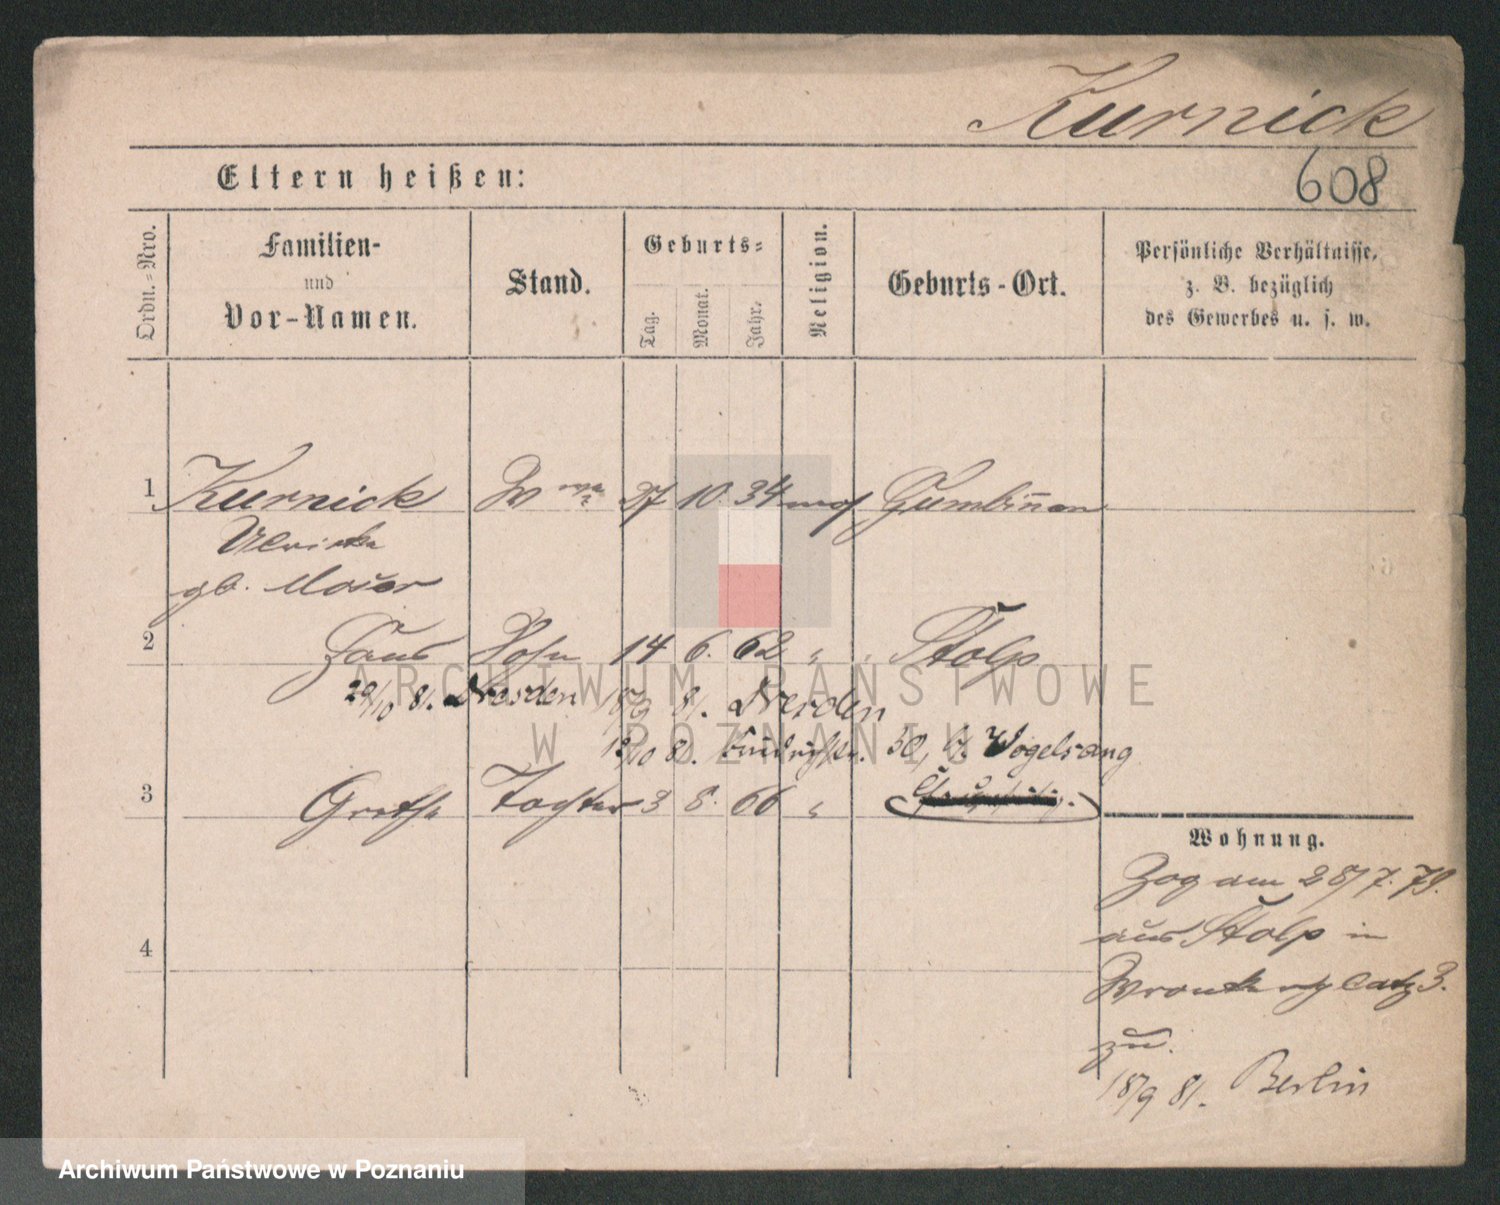 Kurnick
608
Eltern heißen:
Ordn.-Nro.
Familien-
und
Vor-Namen.
Stand.
Geburts-
Tag.
Monat.
Jahr.
Religion.
Geburts-Ort.
Persönliche Verhältnisse,
z. B. bezüglich
des Gewerbes u. s. w.
1 Kurnick Wwe 27 10. 34 mos Gumbinnen
Ulricke
gb. Moser
2 Hans Sohn 14 6. 62 " Stolp
29/10 81. Dresden 18/9 81. Dresden
12/10 81. 30, b. Vogelsang
3 Grethe Tochter 3 8. 66 "
Wohnung.
Zog am 28/7. 79.
aus Stolp in
Wronkerplatz 3.
zu.
18/9 81. Berlin
4
ARCHIWUM PAŃSTWOWE
W POZNANIU
Archiwum Państwowe w Poznaniu